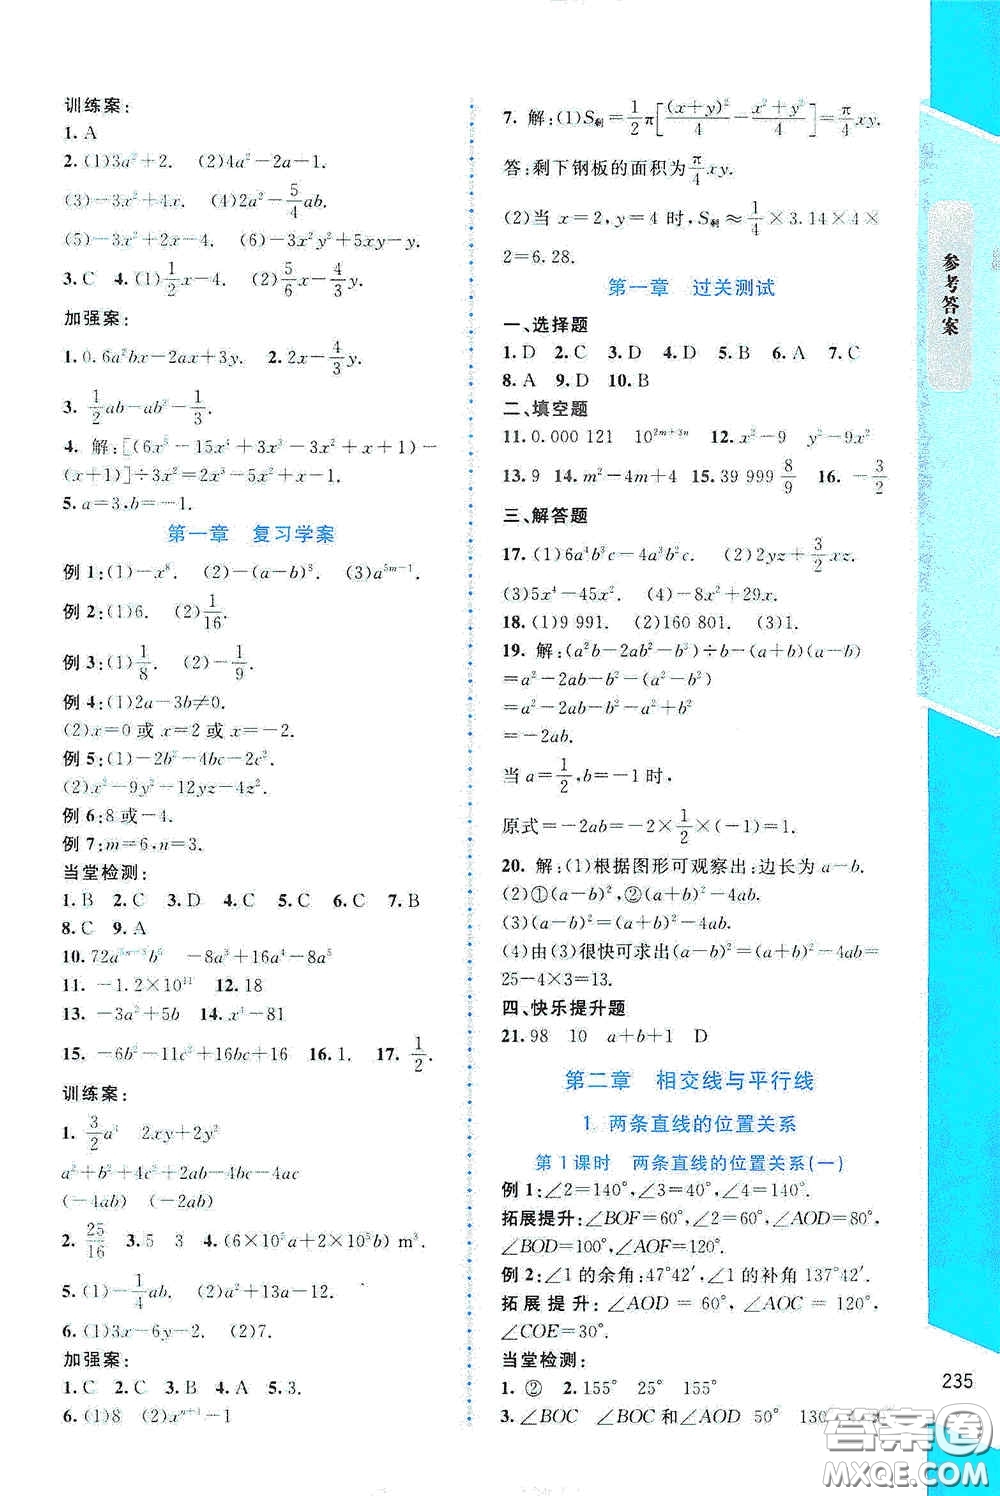 训练案:
1. A
2. (1)3a²+2. (2)4a²-2a-1.
(3)-3x²+4x. (4)2a²-5/4ab.
(5)-3x²+2x-4. (6)-3x²y²+5xy-y.
3. C 4. (1)1/2x-y. (2)5/6x-4/3y.
加强案:
1. 0.6a²bx-2ax+3y. 2. 2x-4/3y.
3. 1/2ab-ab²-1/3.
4. 解:[(6x⁵-15x⁴+3x³-3x²+x+1)-
(x+1)]÷3x²=2x³-5x²+x-1.
5. a=3,b=-1.
第一章 复习学案
例 1:(1)-x⁸. (2)-(a-b)⁸. (3)a⁵ᵐ⁻¹.
例 2:(1)6. (2)1/16.
例 3:(1)1/8. (2)-1/9.
例 4:(1)2a-3b≠0.
(2)x=0 或 x=2 或 x=-1.
例 5:(1)-2b²-4bc-2c².
(2)x²-9y²+12yz-4z².
例 6:8 或-4.
例 7:m=6,n=3.
当堂检测:
1. B 2. C 3. D 4. D 5. C 6. C 7. B
8. C 9. A
10. -8a³+16a⁴-8a⁵
11. -1.2×10¹¹ 12. 18
13. -3a²+5b 14. x⁴-81
15. -6b²-11c²+16bc+1 16. 1. 17. 1/2.
训练案:
1. 3/2a³ 2xy+2y²
a²+b²+4c²+2ab-4ac-4bc
(-4ab) (-2ab)
2. 25/16 3. 5 3 4. (6×10⁵a+2×10⁵b) m³.
5. (1)-1/4ab. (2)a²+2a-12.
6. (1)3x-6y-2. (2)7.
加强案:
1. C 2. C 3. C 4. A 5. 3.
6. (1)8 (2)xⁿ⁺¹-1
7. 解:(1)S剩=1/2π[(x+y)²/4-(x²+y²)/4]=π/4xy.
答:剩下钢板的面积为π/4xy.
(2)当 x=2,y=4 时,S剩≈1/4×3.14×4×
2=6.28.
第一章 过关测试
一、选择题
1. D 2. C 3. D 4. D 5. B 6. A 7. C
8. A 9. D 10. B
二、填空题
11. 0.000 121 10²ᵐ⁺³ⁿ 12. x²-9 y²-9x²
13. 9 14. m²-4m+4 15. 39 999 8/9 16. -3/2
三、解答题
17. (1)6a⁴b³c-4a³b²c. (2)2yz+3/2xz.
(3)5x⁴-45x². (4)-8x²+29x.
18. (1)9 991. (2)160 801. (3)1.
19. 解:(a²b-2ab²-b³)÷b-(a+b)(a-b)
=a²-2ab-b²-(a²-b²)
=a²-2ab-b²-a²+b²
=-2ab.
当 a=1/2,b=-1 时,
原式=-2ab=-2×1/2×(-1)=1.
20. 解:(1)根据图形可观察出:边长为 a-b.
(2)①(a-b)²,②(a+b)²-4ab.
(3)(a-b)²=(a+b)²-4ab.
(4)由(3)很快可求出(a-b)²=(a+b)²-4ab=
25-4×3=13.
四、快乐提升题
21. 98 10 a+b+1 D
第二章 相交线与平行线
1. 两条直线的位置关系
第 1 课时 两条直线的位置关系(一)
例 1:∠2=140°,∠3=40°,∠4=140°.
拓展提升:∠BOF=60°,∠2=60°,∠AOD=80°,
∠BOD=100°,∠AOF=120°.
例 2:∠1 的余角:47°42′,∠1 的补角 137°42′.
拓展提升:∠AOD = 60°,∠AOC = 120°,
∠COE=30°.
当堂检测:
1. ② 2. 155° 25° 155°
3. ∠BOC ∠BOC 和∠AOD 50° 130°
参考答案
235
答案卷
MXQE.COM